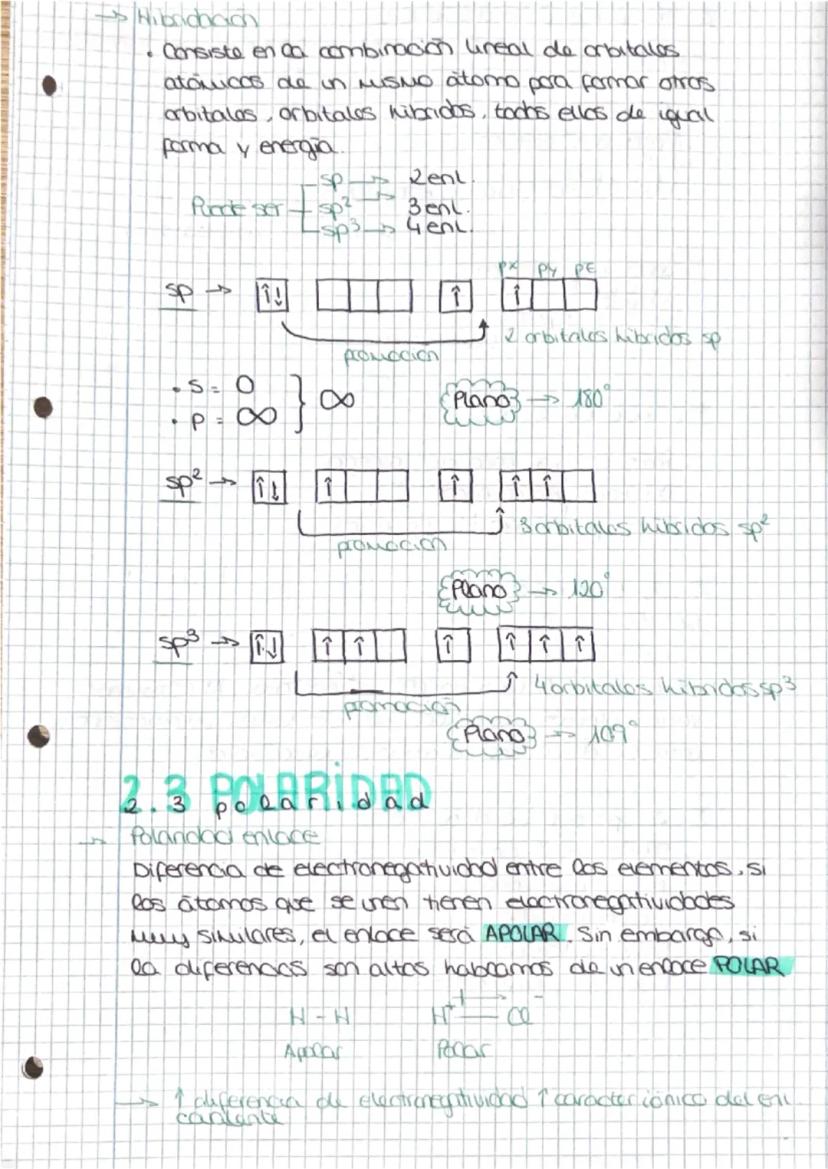 → Hibridación
• Consiste en la combinación lineal de orbitales
atómicos de un mismo átomo para formar otros
orbitales, orbitales híbridos, todos ellos de igual
forma y energía.
Puede ser
sp → 2 enl.
sp² → 3 enl.
sp³ → 4 enl.
px py pz
sp → ↑↓ ↑ ↑
promoción
2 orbitales híbridos sp
• S = 0
• P = ∞ } ∞
Plano → 180°
sp² → ↑↓ ↑ ↑ ↑ ↑
promoción
3 orbitales híbridos sp²
Plano → 120°
sp³ → ↑↓ ↑ ↑ ↑ ↑ ↑ ↑
promoción
4 orbitales híbridos sp³
Plano → 109°
2.3 POLARIDAD
2.3 polaridad
→ Polaridad enlace
Diferencia de electronegatividad entre los elementos, si
los átomos que se unen tienen electronegatividades
muy similares, el enlace será APOLAR. Sin embargo, si
la diferencias son altas hablamos de un enlace POLAR
H - H H⁺ — Cl⁻
Apolar Polar
→ ↑ diferencia de electronegatividad ↑ caracter iónico del en